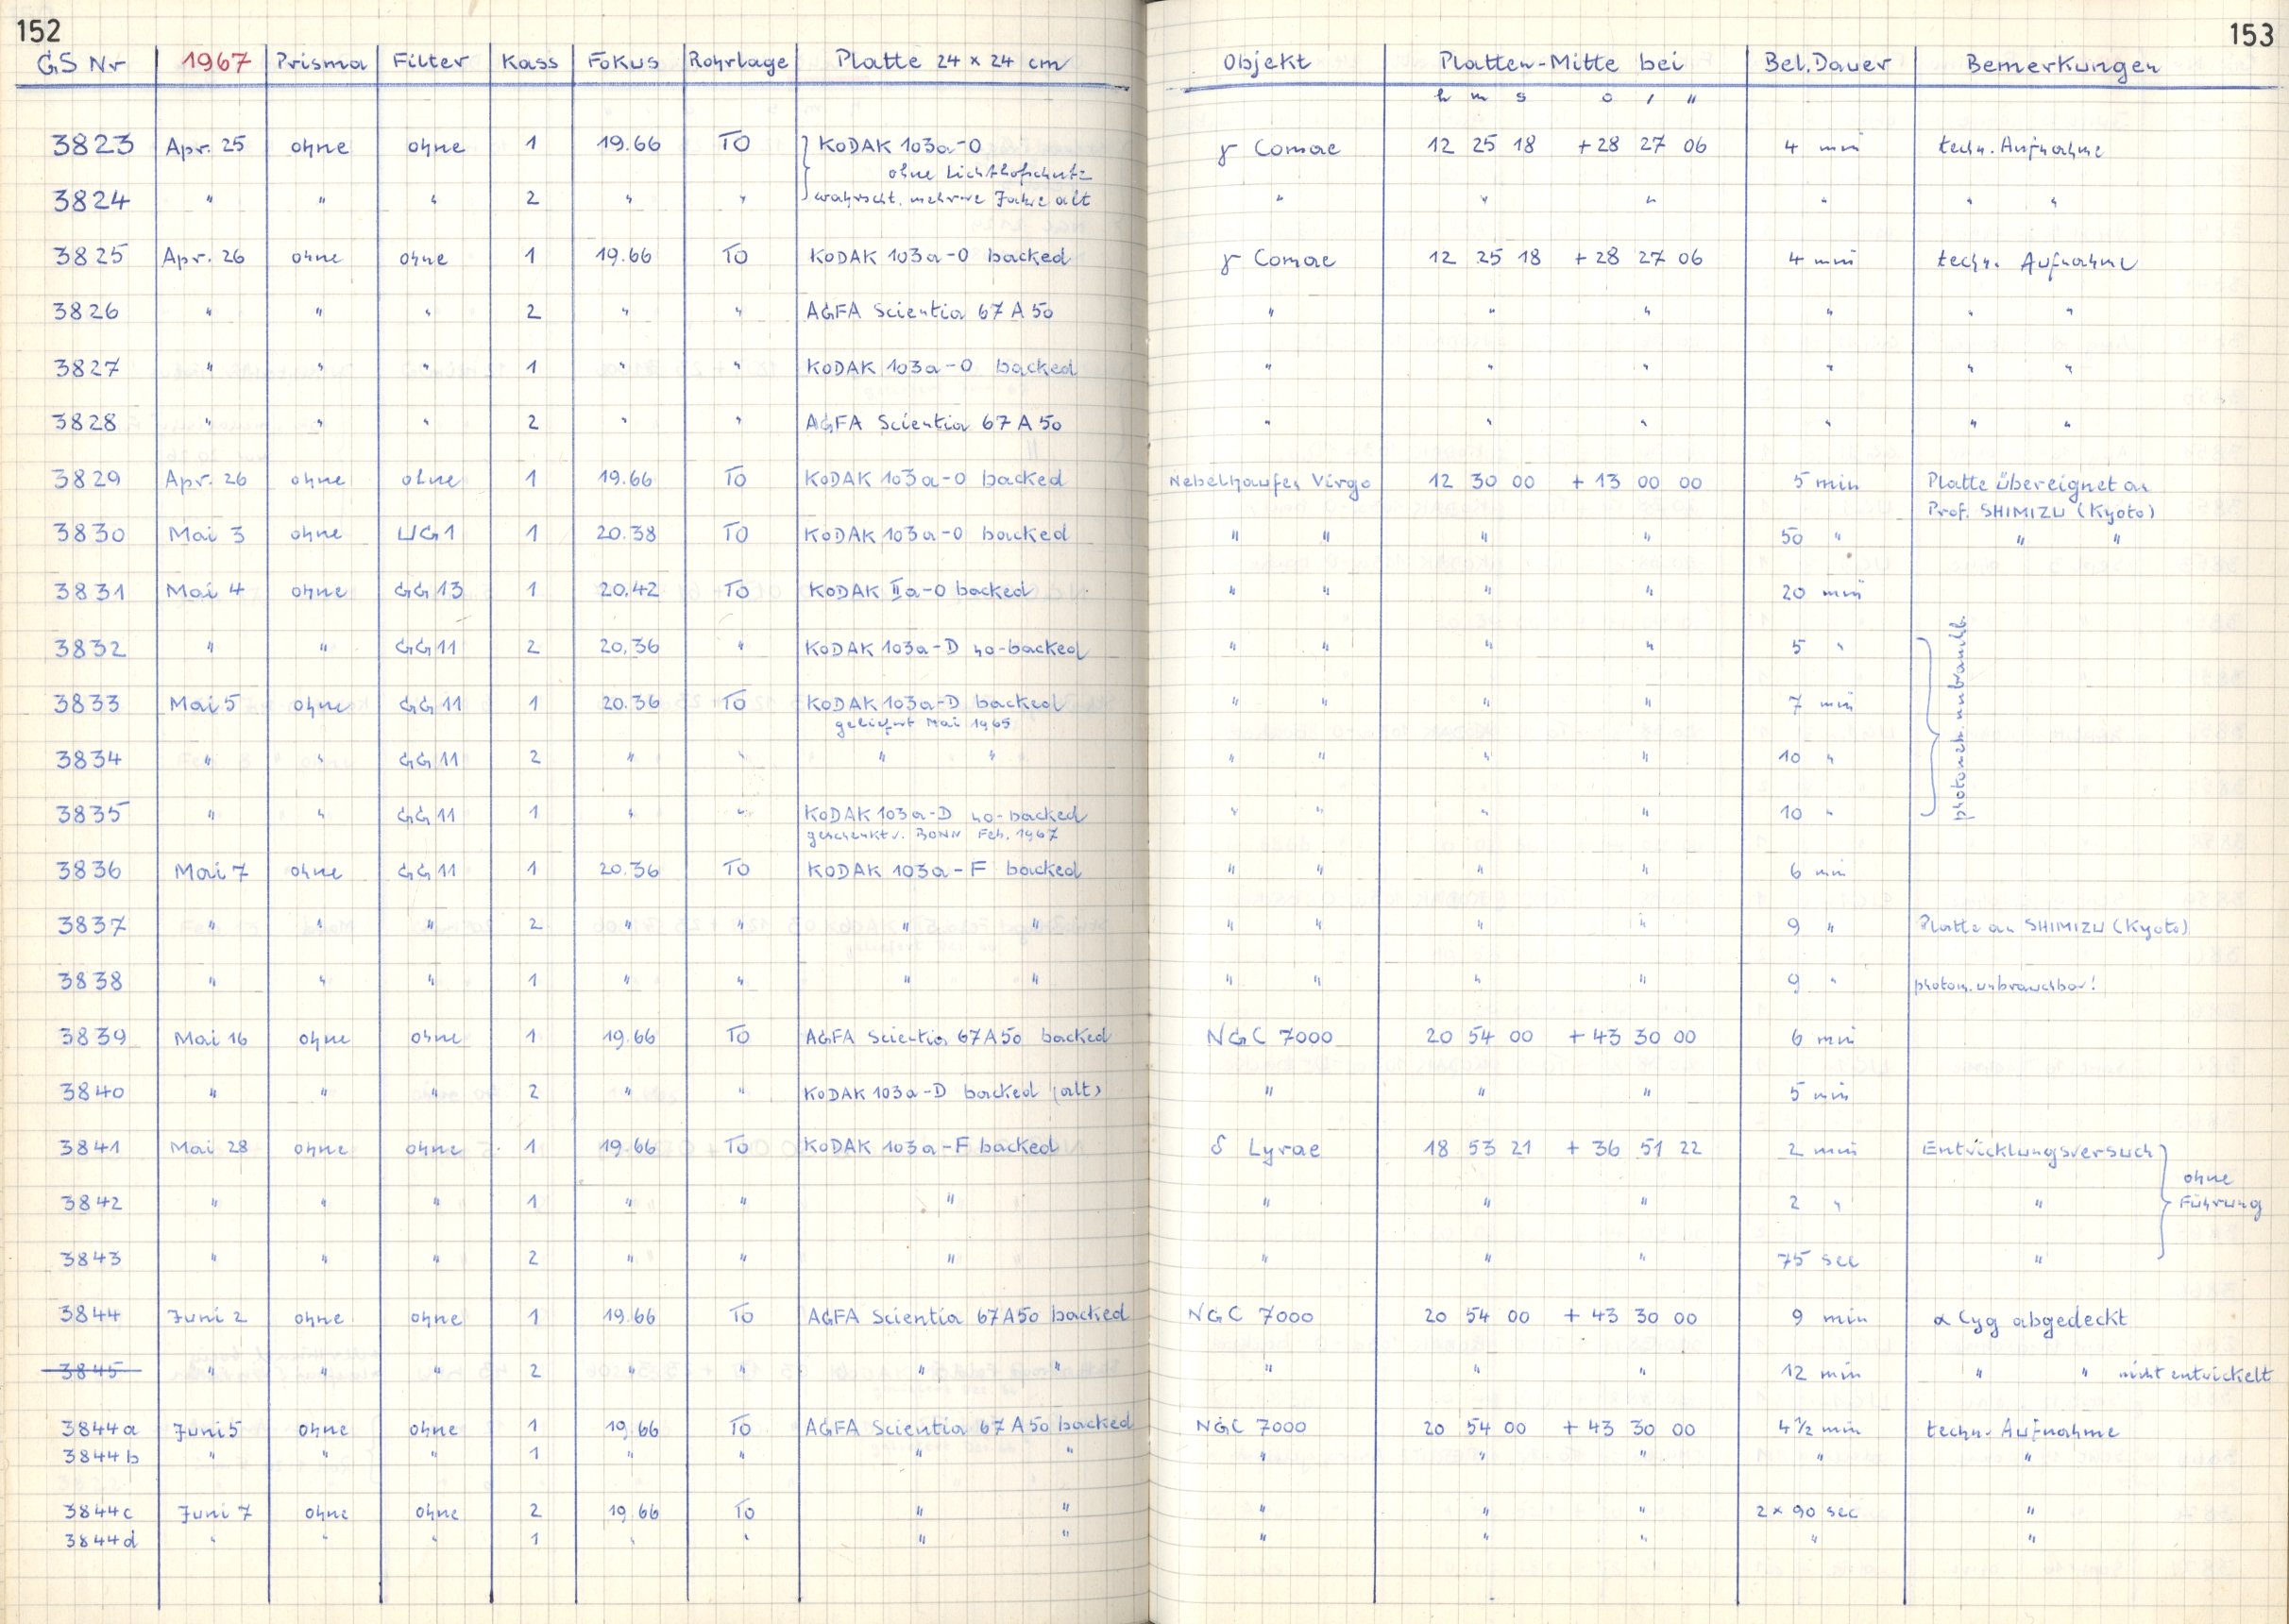 152
153
GS Nr 1967 Prisma Filter Kass Fokus Rohrlage Platte 24 × 24 cm Objekt Platten-Mitte bei Bel. Dauer Bemerkungen
h m s o ' "
3823 Apr. 25 ohne ohne 1 19.66 TO KODAK 103a-O γ Comae 12 25 18 +28 27 06 4 min techn. Aufnahme
ohne Lichthofschutz
3824 " " " 2 " " wahrscht. mehrere Jahre alt " " " " " "
3825 Apr. 26 ohne ohne 1 19.66 TO KODAK 103a-O backed γ Comae 12 25 18 +28 27 06 4 min techn. Aufnahme
3826 " " " 2 " " AGFA Scientia 67 A 50 " " " " " "
3827 " " " 1 " " KODAK 103a-O backed " " " " " "
3828 " " " 2 " " AGFA Scientia 67 A 50 " " " " " "
3829 Apr. 26 ohne ohne 1 19.66 TO KODAK 103a-O backed Nebelhaufen Virgo 12 30 00 +13 00 00 5 min Platte übereignet an
Prof. SHIMIZU (Kyoto)
3830 Mai 3 ohne UG1 1 20.38 TO KODAK 103a-O backed " " " " 50 " " "
3831 Mai 4 ohne GG13 1 20.42 TO KODAK IIa-O backed " " " " 20 min
3832 " " GG11 2 20.36 " KODAK 103a-D no-backed " " " " 5 "
photom. unbrauchb.
3833 Mai 5 ohne GG11 1 20.36 TO KODAK 103a-D backed " " " " 7 min
geliefert Mai 1965
3834 " " GG11 2 " " " " " " " " 10 "
3835 " " GG11 1 " " KODAK 103a-D no-backed " " " " 10 "
geschenkt v. BONN Feb. 1967
3836 Mai 7 ohne GG11 1 20.36 TO KODAK 103a-F backed " " " " 6 min
3837 " " " 2 " " " " " " " " 9 " Platte an SHIMIZU (Kyoto)
3838 " " " 1 " " " " " " " " 9 " photom. unbrauchbar!
3839 Mai 16 ohne ohne 1 19.66 TO AGFA Scientia 67A50 backed NGC 7000 20 54 00 +43 30 00 6 min
3840 " " " 2 " " KODAK 103a-D backed (alt) " " " 5 min
3841 Mai 28 ohne ohne 1 19.66 TO KODAK 103a-F backed δ Lyrae 18 53 21 +36 51 22 2 min Entwicklungsversuch
ohne
3842 " " " 1 " " " " " " 2 " " Führung
3843 " " " 2 " " " " " " 75 sec "
3844 Juni 2 ohne ohne 1 19.66 TO AGFA Scientia 67A50 backed NGC 7000 20 54 00 +43 30 00 9 min α Cyg abgedeckt
3845 " " " 2 " " " " " " " 12 min " " nicht entwickelt
3844a Juni 5 ohne ohne 1 19.66 TO AGFA Scientia 67 A 50 backed NGC 7000 20 54 00 +43 30 00 4½ min techn. Aufnahme
3844b " " " 1 " " " " " " " " "
3844c Juni 7 ohne ohne 2 19.66 TO " " " " " 2 × 90 sec "
3844d " " " 1 " " " " " " " " "